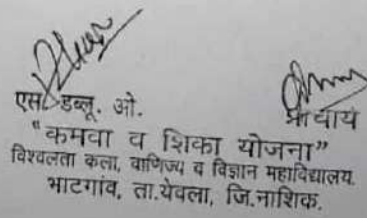 एस. डब्लू. ओ. प्राचार्य
"कमवा व शिका योजना"
विश्वलता कला, वाणिज्य व विज्ञान महाविद्यालय.
भाटगांव, ता.येवला, जि.नाशिक.